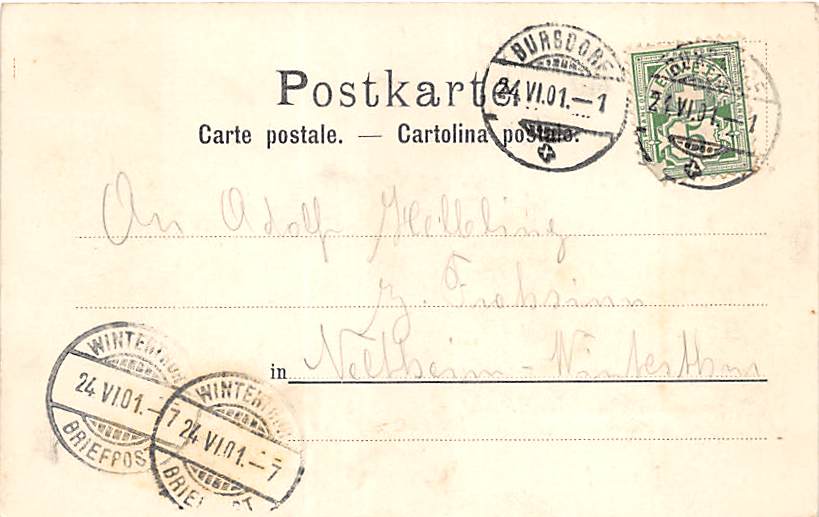 Postkarte.
Carte postale. — Cartolina postale.
BURGDORF
24.VI.01.–1
24.VI.01.–1
An Adolf Helbling
z. Frohsinn
in Veltheim-Winterthur
WINTERTHUR
24.VI.01.–7
BRIEFPOST
WINTERTHUR
24.VI.01.–7
BRIEFPOST